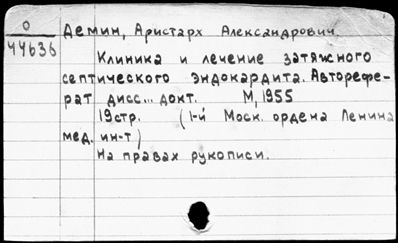 О
44636
Демин, Аристарх Александрович.
Клиника и лечение затяжного
септического эндокардита. Авторефе-
рат дисс... докт. М, 1955
19стр. (1-й Моск. ордена Ленина
мед. ин-т)
На правах рукописи.